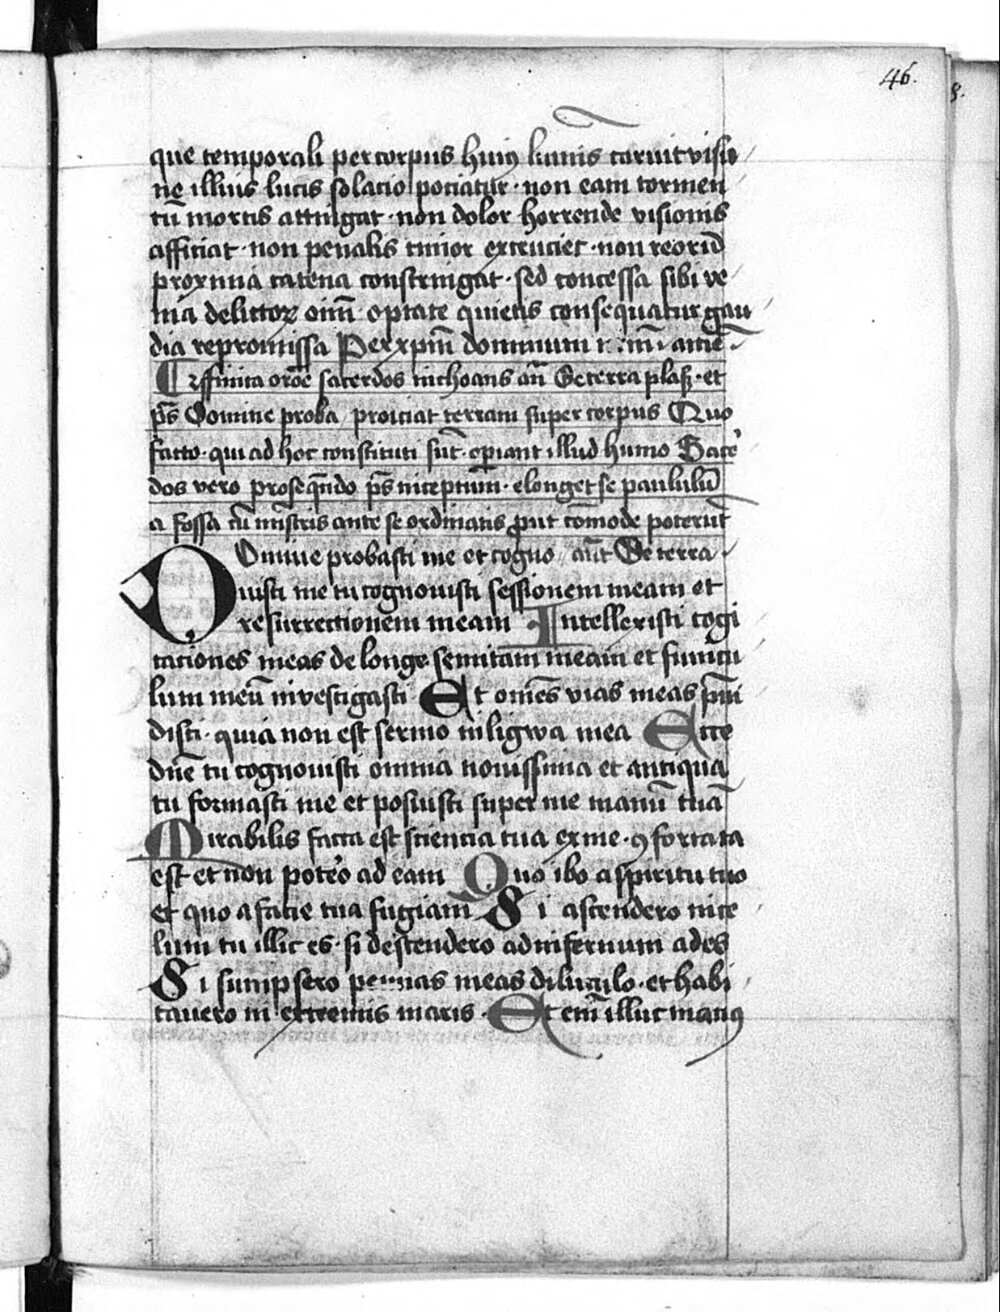 46.
que temporali per corpus huiꝰ luminis caruit visio
ne illius lucis solacio potiatur · non eam tormen
tū mortis attingat · non dolor horrende visionis
afficiat · non penalis timor excruciet · non reorū
proxima catena constringat · sed concessa sibi ve
nia delictoꝝ oīm · optate quietis consequatur gau
dia repromissa Per xp̄m dominum n̄r̄m̄ amē
finita orōe sacerdos inchoans an̄ De terra plas · et
ps̄ Domine proba proiciat terram super corpus Quo
facto · qui ad hoc constituti sūt · operiant illud humo Sacer
dos vero proseq̄ndo ps̄ inceptum · elonget se paululū
a fossa cū mīstris ante se ordinatis ꝓut cōmode poterūt
Domine probasti me et cogno an̄t De terra
uisti me tu cognouisti sessionem meam et
resurrectionem meam Intellexisti cogi
taciones meas de longe semitam meam et funicu
lum meū inuestigasti Et omēs vias meas p̄ui
disti · quia non est sermo in ligwa mea Ecce
dn̄e tu cognouisti omnia nouissima et antiqua
tu formasti me et posuisti super me manū tuā
Mirabilis facta est sciencia tua ex me · ꝯfortata
est et non potero ad eam Quo ibo a spiritu tuo
et quo a facie tua fugiam Si ascendero in ce
lum tu illic es · si descendero ad infernum ades
Si sumpsero pennas meas diluculo · et habi
tauero in extremis maris · Et em̄ illuc manꝰ